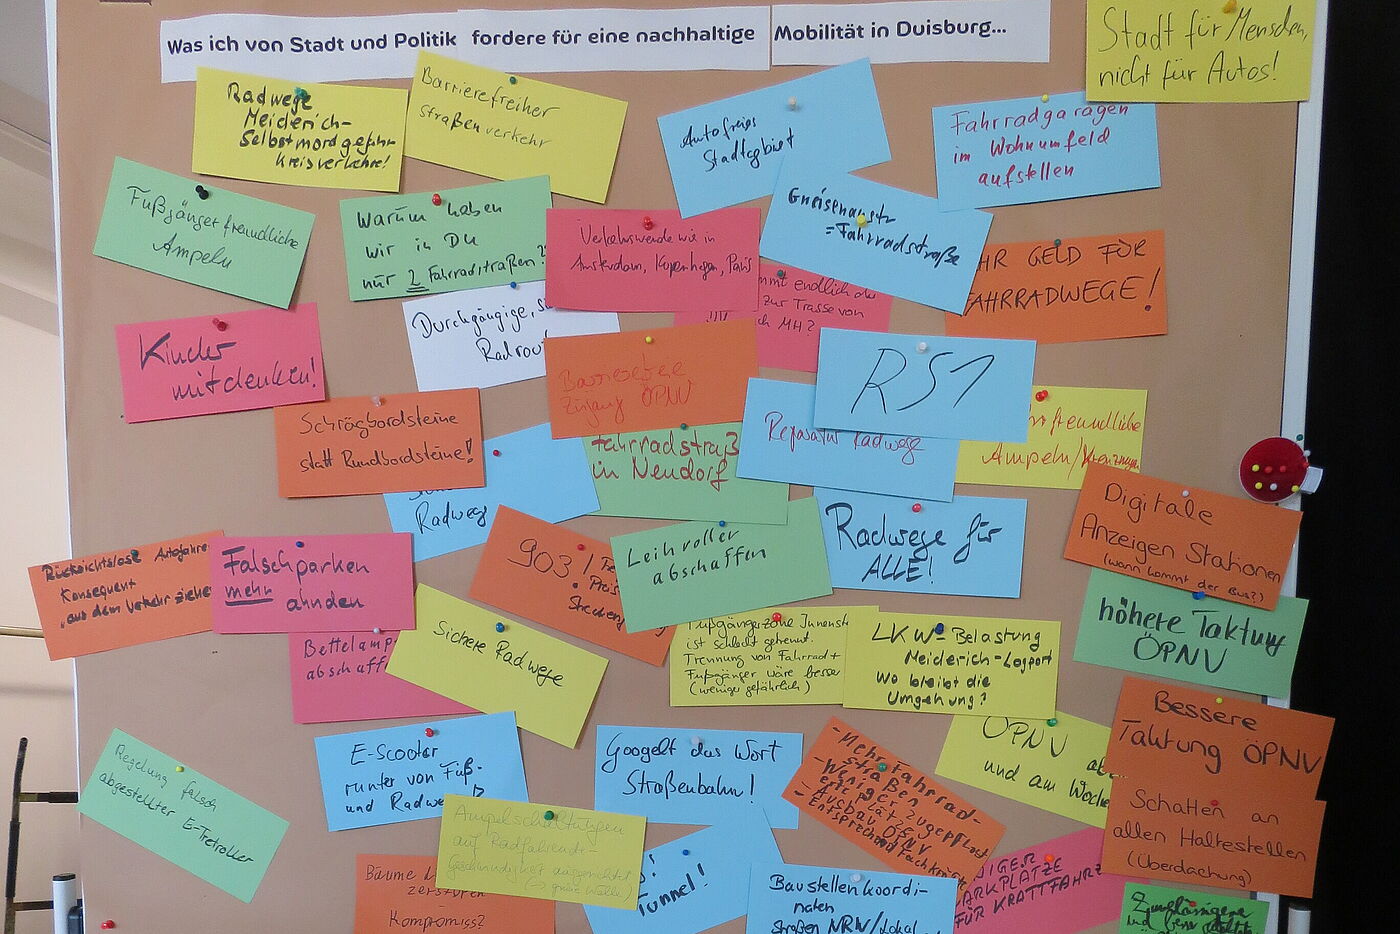 Was ich von Stadt und Politik fordere für eine nachhaltige Mobilität in Duisburg...
Stadt für Menschen,
nicht für Autos!
Radwege
Meiderich-
Selbstmordgefahr
Kreisverkehre!
Barrierefreiher
straßenverkehr
Autofreies
Stadtgebiet
Fahrradgaragen
im Wohnumfeld
aufstellen
Fußgängerfreundliche
Ampeln
Warum haben
wir in DU
nur 2 Fahrradstraßen?
Verkehrswende wie in
Amsterdam, Kopenhagen, Paris
Gneisenaustr
=Fahrradstraße
HR GELD FÜR
FAHRRADWEGE!
Kinder
mitdenken!
Durchgängige,
Radrou
mmt endlich die
zur Trasse von
ch MH?
Barrierefreie
Zugang ÖPNV
RS1
Schrägbordsteine
statt Rundbordsteine!
Radwege
fahrradstraß
in Neudorf
Reparatur Radwege
freundliche
Ampeln/Kreuzungen
Digitale
Anzeigen Stationen
(wann kommt der Bus?)
Rücksichtslose Autofahrer
Konsequent
aus dem Verkehr ziehen
Falschparken
mehr ahnden
903!
Preis
Leihroller
abschaffen
Radwege für
ALLE!
höhere Taktung
ÖPNV
Bettelamp
abschaff
Sichere Radwege
Fußgängerzone Innenst
ist schlecht getrennt.
Trennung von Fahrrad+
Fußgänger wäre besser
(weniger gefährlich)
LKW-Belastung
Meiderich-Logport
Wo bleibt die
Umgehung?
Bessere
Taktung ÖPNV
Regelung falsch
abgestellter E-Tretroller
E-Scooter
runter von Fuß-
und Radwe
Googelt das Wort
Straßenbahn!
-Mehr Fahrrad-
straßen
-Weniger
-Ausbau ÖPNV
-Entsprechend Fachkräfte
ÖPNV
und am Woche
Schatten an
allen Haltestellen
(Überdachung)
Ampelschaltungen
auf Radfahrende-
Geschwindigkeit ausgerichtet
(=> grüne Welle)
Bäume
zerstören
Kompromiss?
Tunnel!
Baustellenkoordi-
naten
Straßen NRW/Lokal
NIGER
PARKPLÄTZE
FÜR KRAFTFAHRZ